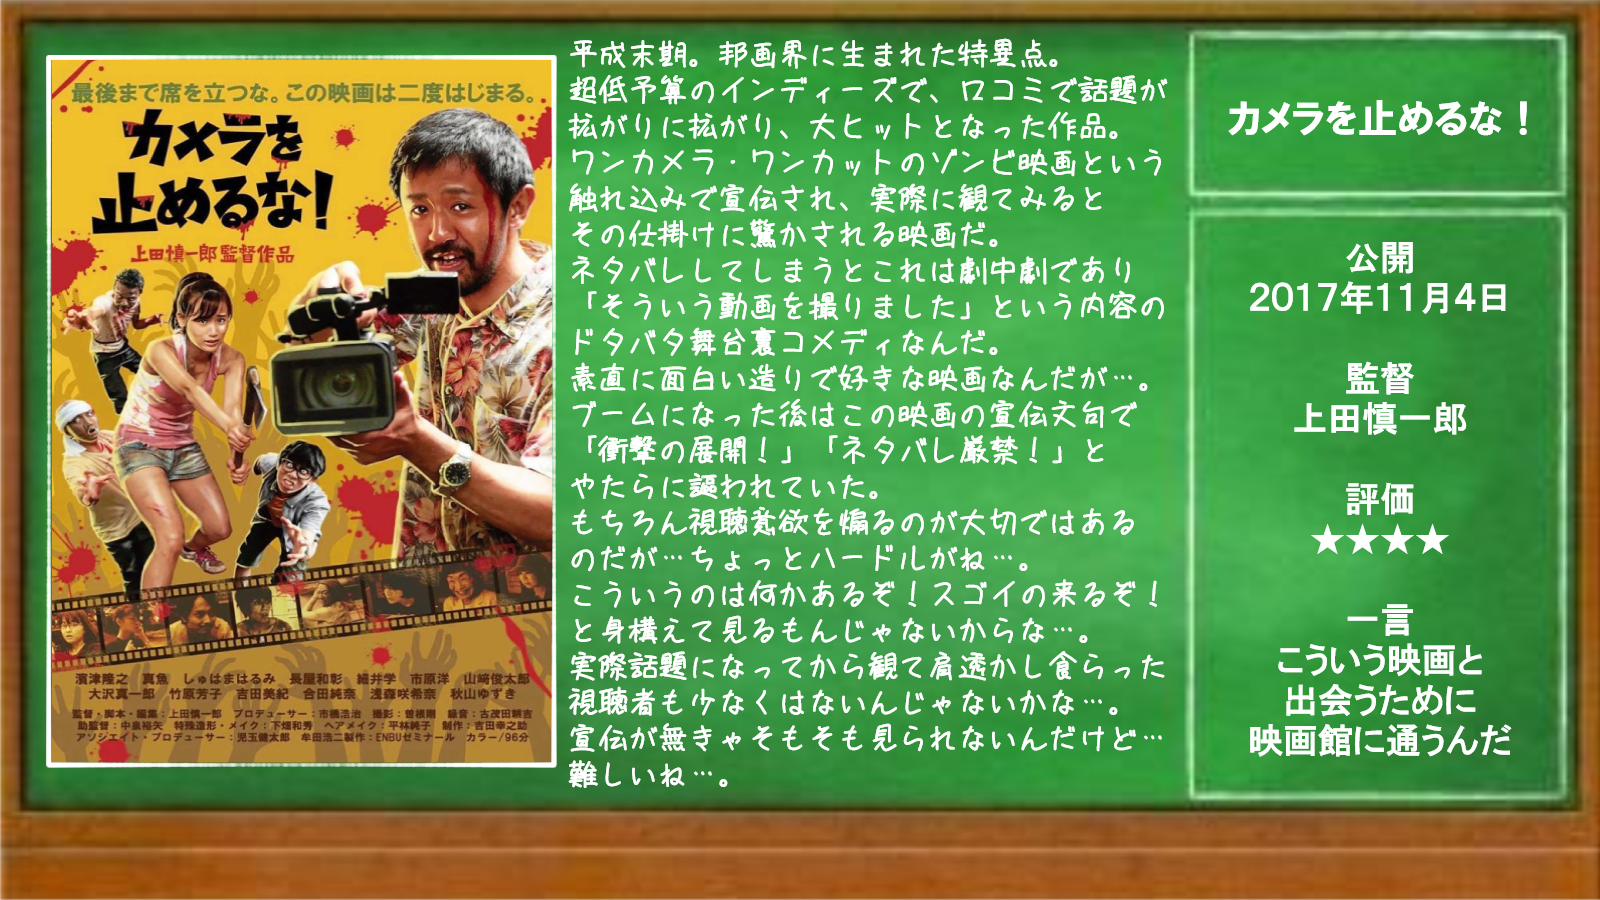 最後まで席を立つな。この映画は二度はじまる。
カメラを
止めるな!
上田慎一郎監督作品
濱津隆之　真魚　しゅはまはるみ　長屋和彰　細井学　市原洋　山﨑俊太郎
大沢真一郎　竹原芳子　吉田美紀　合田純奈　浅森咲希奈　秋山ゆずき
監督・脚本・編集：上田慎一郎　プロデューサー：市橋浩治　撮影：曽根剛　録音：古茂田耕吉
助監督：中泉裕矢　特殊造形・メイク：下畑和秀　ヘアメイク：平林純子　制作：吉田幸之助
アソシエイト・プロデューサー：児玉健太郎　牟田浩二製作：ENBUゼミナール　カラー/96分
平成末期。邦画界に生まれた特異点。
超低予算のインディーズで、口コミで話題が
拡がりに拡がり、大ヒットとなった作品。
ワンカメラ・ワンカットのゾンビ映画という
触れ込みで宣伝され、実際に観てみると
その仕掛けに驚かされる映画だ。
ネタバレしてしまうとこれは劇中劇であり
「そういう動画を撮りました」という内容の
ドタバタ舞台裏コメディなんだ。
素直に面白い造りで好きな映画なんだが…。
ブームになった後はこの映画の宣伝文句で
「衝撃の展開！」「ネタバレ厳禁！」と
やたらに謳われていた。
もちろん視聴意欲を煽るのが大切ではある
のだが…ちょっとハードルがね…。
こういうのは何かあるぞ！スゴイの来るぞ！
と身構えて見るもんじゃないからな…。
実際話題になってから観て肩透かし食らった
視聴者も少なくはないんじゃないかな…。
宣伝が無きゃそもそも見られないんだけど…
難しいね…。
カメラを止めるな！
公開
2017年11月4日
監督
上田慎一郎
評価
★★★★
一言
こういう映画と
出会うために
映画館に通うんだ